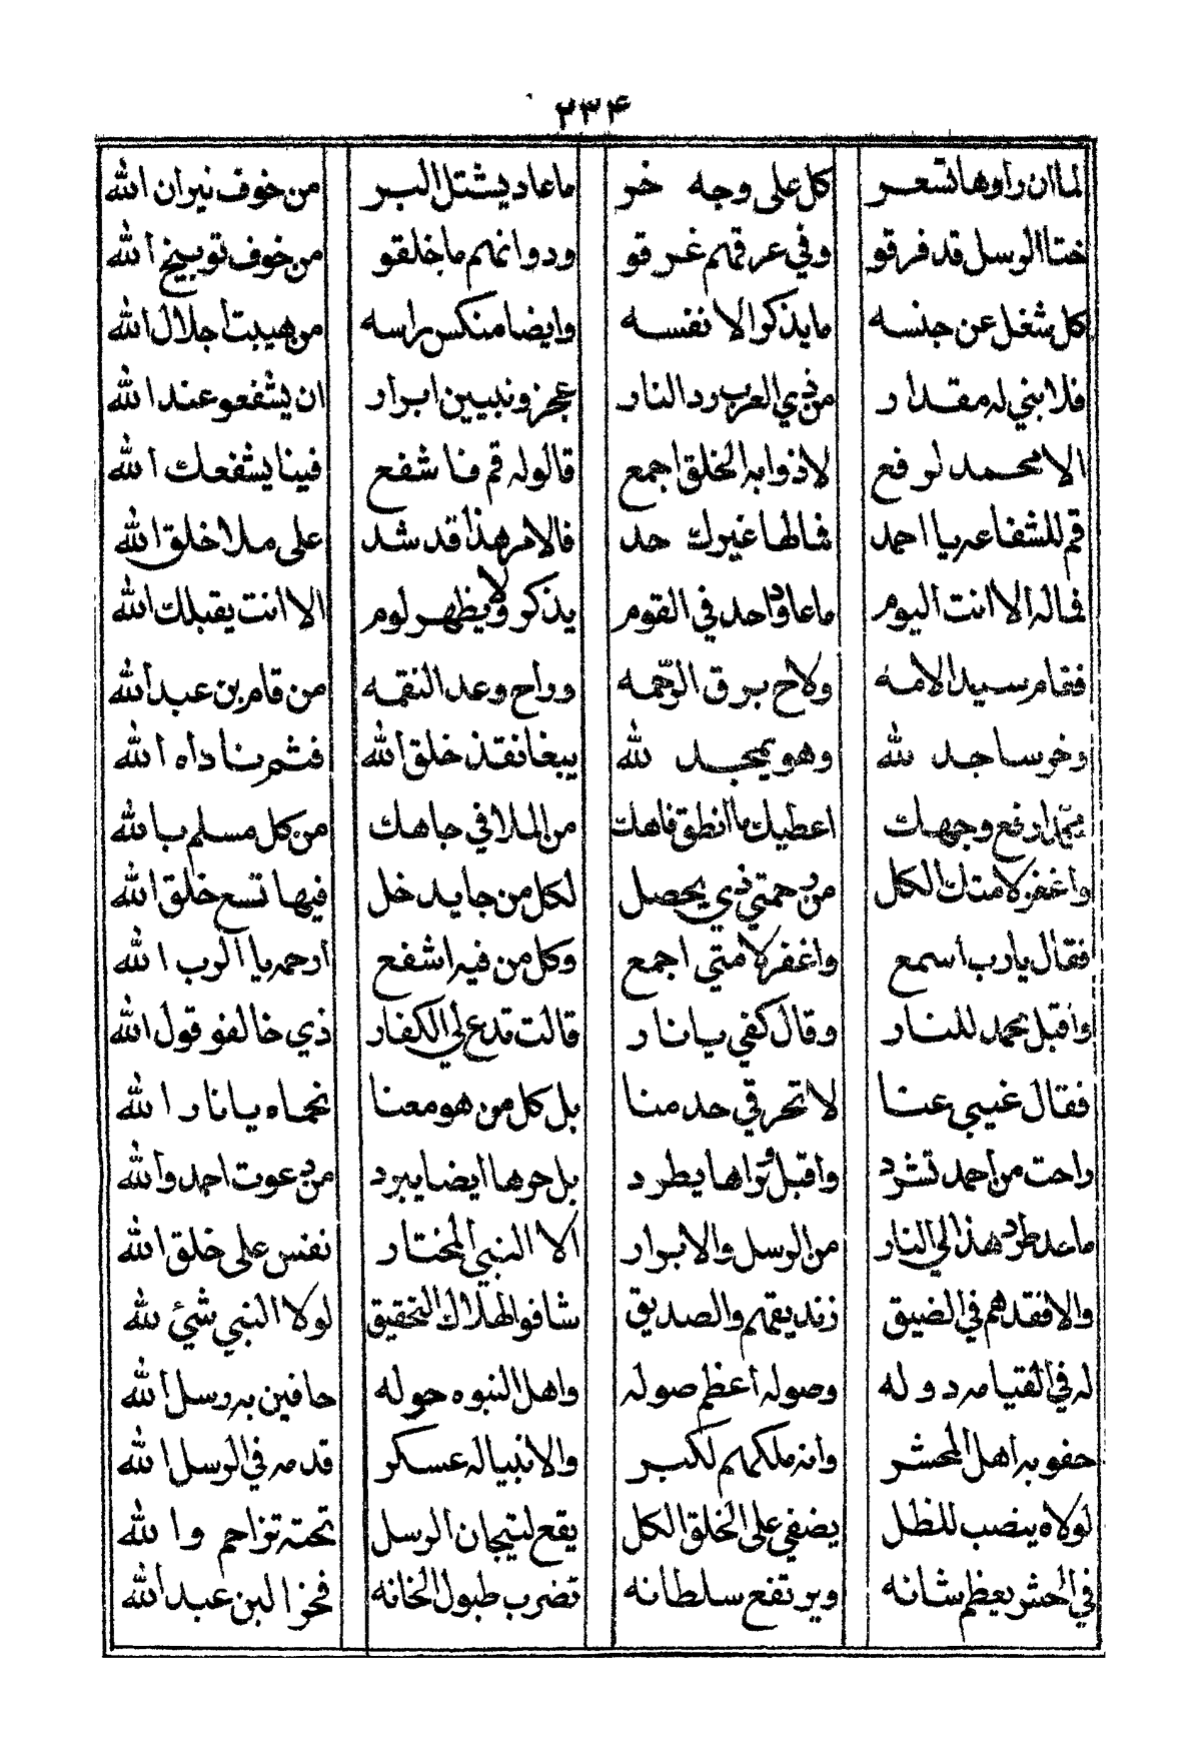 ٢٣٤
لما ان راوها تسعر كل على وجه خر ما عاد يشتل البر من خوف نيران الله
ختا الرسل قد فرقو وفي عرقهم غرقو ودوا نهم ما خلقو من خوف توبيخ الله
كل شغل عن جنسه ما يذكر الا نفسه وايضا منكس راسه من هيبت اجلال الله
فلا بني له مقدار من ذي العرب رد النار عجز ونبيين ابرار ان يشفعو عند الله
الا محمد لو فع لاذوا به الخلق اجمع قالوله قم فاشفع فينا يشفعك الله
قم للشفاعه يا احمد فالها غيرك حد فالامر هذا قد شد على ملا خلق الله
فماله الا انت اليوم ما عاد واحد في القوم يذكر ولا يظهر لوم الا انت يقبلك الله
فقام سيد الامه ولاح برق الرحمه وراح وعد النقمه من قام بن عبد الله
وخر ساجد لله وهو يمجد لله يبغا نقذ خلق الله فثم ناداه الله
محمد ارفع وجهك اعطيك ما انطق فاهك من الملا في جاهك من كل مسلم بالله
واغفر لامتك الكل من رحمتي ذي يحصل لكل من جا يدخل فيها تسع خلق الله
فقال يارب اسمع واغفر لامتي اجمع وكل من فيه اشفع ارحمه يا الرب الله
واقبل محمد للنار وقال كفي يا نار قالت تدع لي الكفار ذي خالفو قول الله
فقال غيبي عنا لا تحرقي حد منا بل كل من هو معنا نجاه يا نار الله
راحت من احمد تشرد واقبل وراها يطرد بل حرها ايضا يبرد من دعوت احمد والله
ما عد طرد هذا لي النار من الرسل والابرار الا النبي المختار نفس على خلق الله
والا فقدهم في الضيق زنديقهم والصديق شافو الهلاك التحقيق لولا النبي شيء لله
له في القيامه دوله وصوله اعظم صوله واهل النبوه حوله حافين به رسل الله
حفو به اهل المحشر وانه ملكهم لكبر والانبيا له عسكر قدمه في الرسل الله
لولاه ينصب للظل يضفي على الخلق الكل يقع لتيجان الرسل تحته تزاحم والله
في الحشر يعظم شانه ويرتفع سلطانه تضرب طبول الخانه فخر البن عبد الله